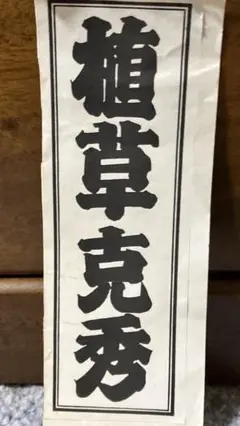 植草克秀